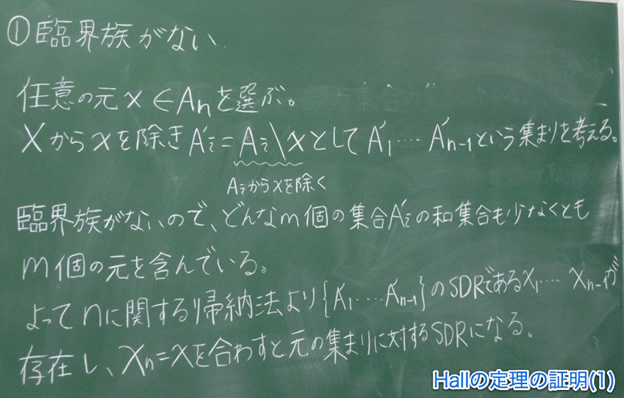 ①臨界族がない
任意の元x∈Anを選ぶ。
Xからxを除きA'i=Ai\xとしてA'1‥‥A'n-1という集まりを考える。
Aiからxを除く
臨界族がないので、どんなm個の集合A'iの和集合も少なくとも
m個の元を含んでいる。
よってnに関する帰納法より{A'1‥‥A'n-1}のSDRであるx1‥‥xn-1が
存在し、xn=xを合わすと元の集まりに対するSDRになる。
Hallの定理の証明(1)